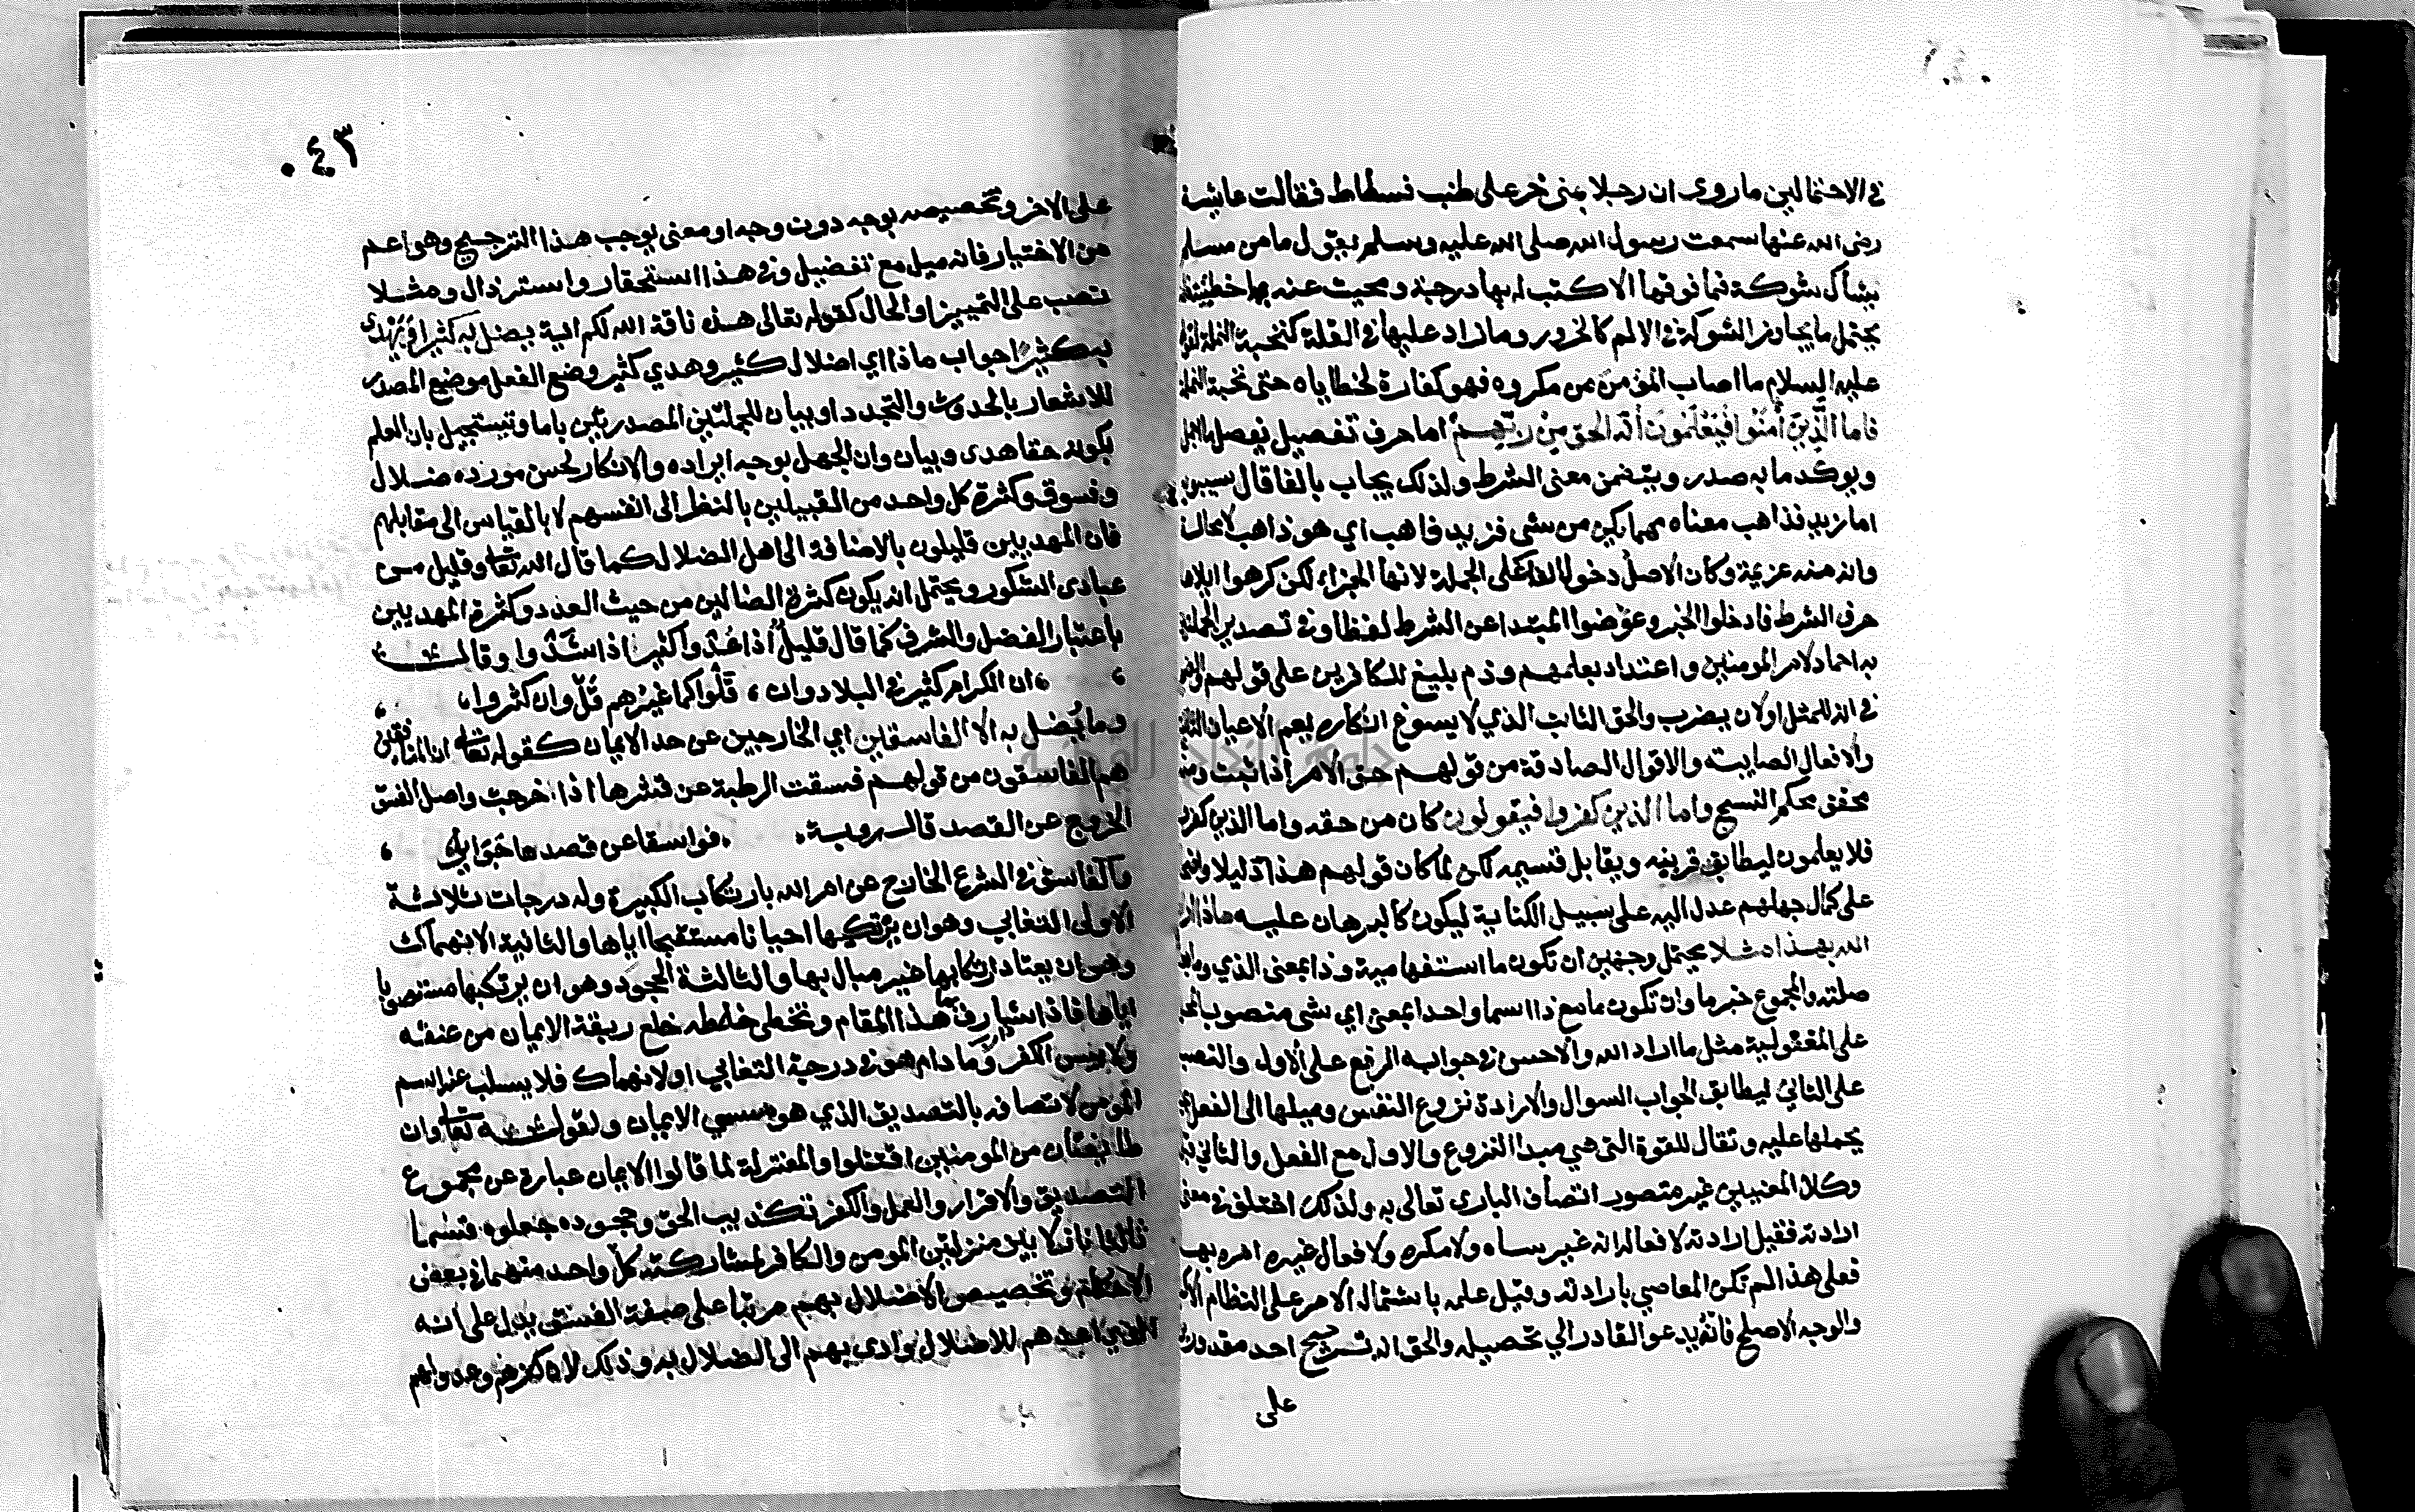 في الاحتمالين ما روي ان رجلا بمنى خر على طنب فسطاط فقالت عايشة
رضى الله عنها سمعت رسول الله صلى الله عليه وسلم يقول ما من مسلم
يشاك شوكة فما فوقها الا كتب له بها درجة ومحيت عنه بها خطيئة
يحتمل ما يجاوز الشوكة في الالم كالخرور وما زاد عليها في القلة كنخبة النملة لقوله
عليه السلام ما اصاب المؤمن من مكروه فهو كفارة لخطاياه حتى نخبة النملة
فاما الَّذِينَ آمَنُوا فَيَعْلَمُونَ أنّه الحق مِنْ رَبِّهِمْ اما حرف تفصيل يفصل ما اجمل
ويوكد ما به صدر ويتضمن معنى الشرط ولذلك يجاب بالفا قال سيبويه
اما زيد فذاهب معناه مهما يكن من شي فزيد فاهب اي هو ذاهب لا محالة
وانه منه عزيمة وكان الاصل دخول الفا على الجملة لانها الجزاء لكن كرهوا ايلاها
حرف الشرط فادخلوا الخبر وعوّضوا المبتدا عن الشرط لفظا وفي تصدير الجملتين
به احماد لامر المومنين واعتداد بعلمهم وذم بليغ للكافرين على قولهم والضمير
في انه للمثل اولان يضرب والحق الثابت الذي لا يسوغ انكاره يعم الاعيان الثابتة
والافعال الصايبته والاقوال الصادقة من قولهم حق الامر اذا ثبت ومنه
محقق محكم النسج واما الذين كفروا فيقولون كان من حقه واما الذين كفروا
فلا يعلمون ليطابق قرينه ويقابل قسيمه لكن لما كان قولهم هذا دليلا واضحا
على كمال جهلهم عدل اليه على سبيل الكناية ليكون كالبرهان عليه ماذا اراد
الله بهذا مثلا يحتمل وجهين ان تكون ما استفهامية وذا بمعنى الذي وما بعده
صلته والمجموع خبر ما وان تكون ما مع ذا اسما واحدا بمعنى اي شي منصوب المحل
على المفعولية مثل ما اراد الله والاحسن في جوابه الرفع على الاول والنصب
على الثاني ليطابق الجواب السوال والارادة نزوع النفس وميلها الى الفعل بحيث
يحملها عليه وتقال للقوة التى هي مبدا النزوع والاول مع الفعل والثاني قبله
وكلا المعنيين غير متصور اتصاف البارى تعالى به ولذلك اختلف في معنى
ارادته فقيل ارادته لافعاله انه غير ساه ولا مكره ولافعال غيره امره بها
فعلى هذا لم تكن المعاصي بارادته وقيل علمه باشتمال الامر على النظام الاكمل
والوجه الاصلح فانه يدعو القادر الي تحصيله والحق انه ترجيح احد مقدوريه
على
٠٤٣
على الاخر وتخصيصه بوجه دون وجه او معنى يوجب هذا الترجيح وهو اعم
من الاختيار فانه ميل مع تفضيل وفي هذا استحقار واسترذال ومثلا
نصب على التمييز او الحال كقوله تعالى هذه ناقة الله لكم اية يضل به كثيرا وَيَهْدى
به كثيرا جواب ماذا اي اضلال كثير وهدي كثير وضع الفعل موضع المصدر
للاشعار بالحدوث والتجدد او بيان للجملتين المصدرتين باما وتسجيل بان العلم
بكونه حقا هدى وبيان وان الجهل بوجه ايراده والانكار لحسن مورده ضلال
وفسوق وكثرة كل واحد من القبيلين بالنظر الى انفسهم لا بالقياس الى مقابلهم
فان المهديين قليلون بالاضافة الى اهل الضلال كما قال الله تعا وقليل من
عبادى الشكور ويحتمل ان يكون كثرة الضالين من حيث العدد وكثرة المهديين
باعتبار الفضل والشرف كما قال قليلٌ اذا عُدّوا كثير اذا شَدُّوا وقال
ان الكرام كثير في البلاد وان ، قَلّوا كما غيرهم قَلّ وان كثروا ،
وما يُضل به الا الفاسقين اي الخارجين عن حد الايمان كقوله تعا ان المنافقين
هم الفاسقون من قولهم فسقت الرطبة عن قشرها اذا خرجت واصل الفسق
الخروج عن القصد قال روبة ، فواسقا عن قصدها جوايرا ،
والفاسق في الشرع الخارج عن امر الله بارتكاب الكبيرة وله درجات ثلاثة
الاولى التغابي وهو ان يرتكبها احيانا مستقبحا اياها والثانية الانهماك
وهو ان يعتاد ارتكابها غير مبال بها والثالثة الجحود وهو ان يرتكبها مستصوبا
اياها فاذا شارف هذا المقام وتخطى خططه خلع ربقة الايمان من عنقه
ولابس الكفر وما دام هو في درجة التغابي او الانهماك فلا يسلب عنه اسم
المؤمن لاتصافه بالتصديق الذي هو مسمي الايمان ولقوله تعا وان
طائفتان من المومنين اقتتلوا والمعتزلة لما قالوا الايمان عبارة عن مجموع
التصديق والاقرار والعمل والكفر تكذيب الحق وجحوده جعلوه قسما
ثالثا نازلا بين منزلتين المومن والكافر لمشاركته كل واحد منهما في بعض
الاحكام وتخصيص الاضلال بهم مرتبا على صفة الفسق يدل على انه
الذي اعدهم للاضلال وادى بهم الى الضلال به وذلك لان كفرهم وعدولهم